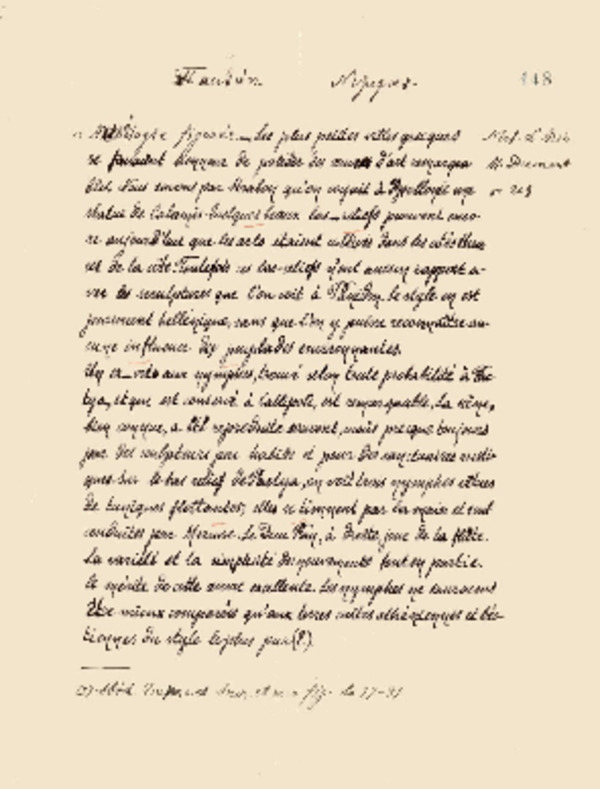 148
figurée - Les plus petites villes grecques
se faisaient honneur de posséder des œuvres d'art remarqua
bles. Nous savons par Strabon qu'on voyait à Apollonie une
statue de Calamis. Quelques beaux bas-reliefs prouvent enco-
re aujourd'hui que les arts étaient cultivés dans les
de la côte. Toutefois ces bas-reliefs n'ont aucun rapport a-
vec les sculptures que l'on voit à le style en est
purement hellénique, sans que l'on y puisse reconnaître au-
cune influence des peuplades environnantes.
aux nymphes, trouvé selon toute probabilité à
et qui est conservé à est remarquable. La scène,
bien connue, a été reproduite souvent, mais presque toujours
par des sculpteurs peu habiles et pour des sanctuaires rusti-
ques. Sur le bas relief de on voit trois nymphes vêtues
de tuniques flottantes; elles se tiennent par la main et sont
conduites par Mercure. Le Dieu Pan, à droite, joue de la flûte.
La variété et la simplicité des mouvements font en partie
le mérite de cette œuvre excellente. Les nymphes ne sauraient
être mieux comparées qu'aux terres cuites athéniennes et béo-
tiennes du style le plus pur